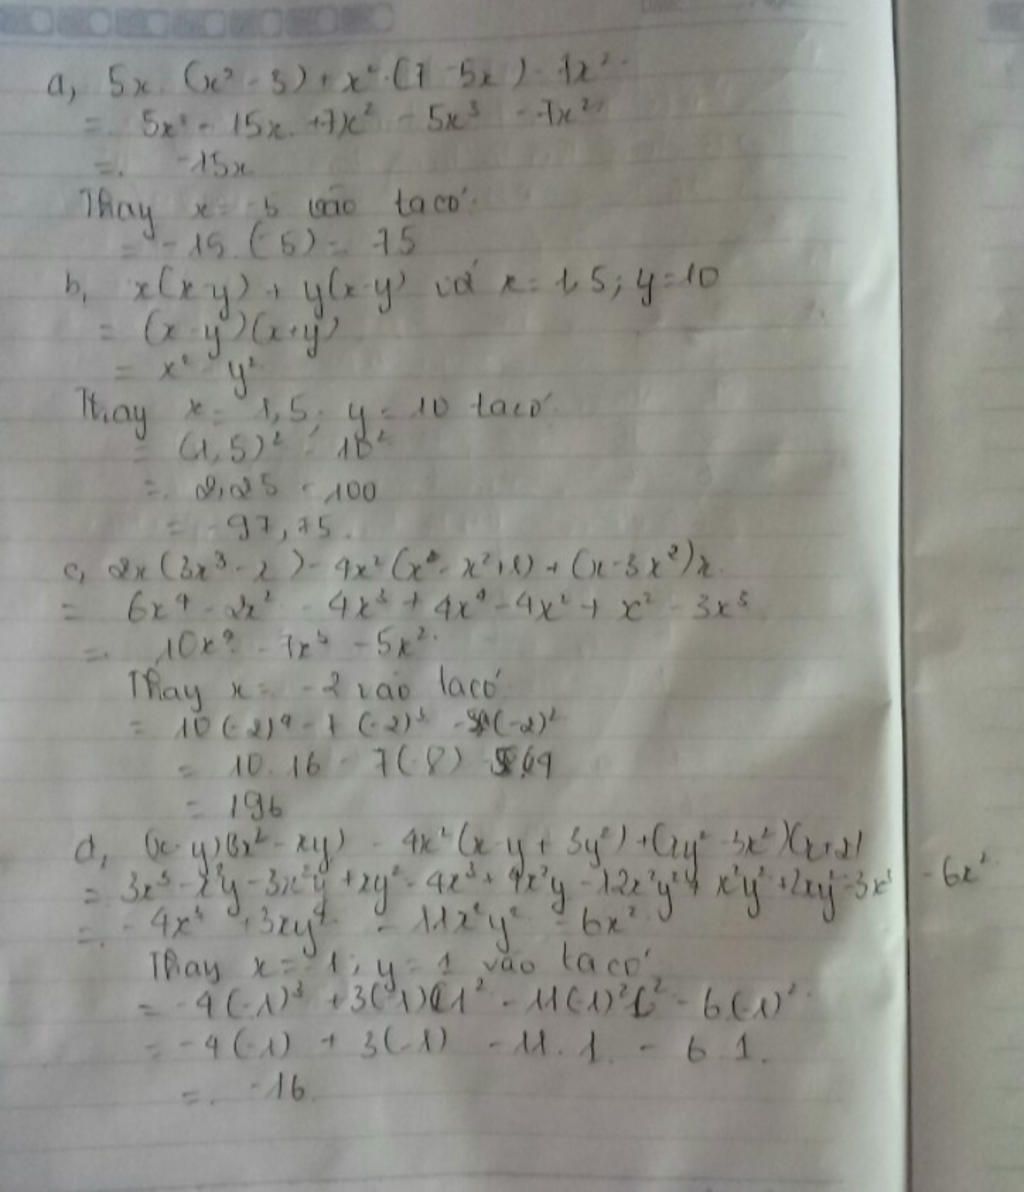 a, 5x. (x² - 3) + x². (7 - 5x) - 7x²
= 5x³ - 15x + 7x² - 5x³ - 7x²
= -15x
Thay x = -5 vào ta có
= -15. (-5) = 75
b, x(x-y) + y(x-y) với x = 1,5; y = 10
= (x-y)(x+y)
= x² - y²
Thay x = 1,5; y = 10 ta có
= (1,5)² - 10²
= 2,25 - 100
= -97,75.
c, 2x(3x³ - x) - 4x²(x - x² + 1) + (x - 3x²)x
= 6x⁴ - 2x² - 4x³ + 4x⁴ - 4x² + x² - 3x³
= 10x⁴ - 7x³ - 5x²
Thay x = -2 vào ta có
= 10(-2)⁴ - 7(-2)³ - 5(-2)²
= 10.16 - 7(-8) - 5.4
= 196
d, (x-y)(3x² - xy) - 4x²(x - y + 3y²) + (xy² - 3x²)(x+2)
= 3x³ - x²y - 3x²y + xy² - 4x³ + 4x²y - 12x²y² + x²y² + 2xy² - 3x³ - 6x²
= -4x³ + 3xy² - 11x²y² - 6x²
Thay x = -1; y = 1 vào ta có
= -4(-1)³ + 3(-1)(1² - 11(-1)²1² - 6(-1)²
= -4(-1) + 3(-1) - 11.1 - 6.1.
= -16.